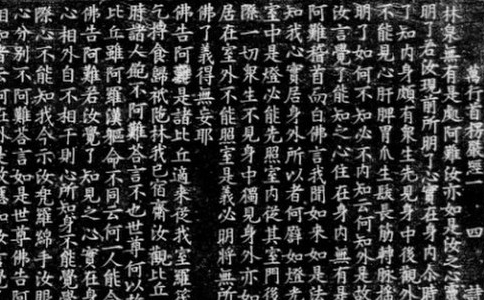 萬行首楞嚴經一 四
林泉無有是處阿難汝亦如是汝之心
明了若汝現前所明了心實在身內尒時
了知內身頗有衆生先見身中後觀外
不能見心肝脾胃爪生髮長筋轉脉搖
明了如何不知必不內知云何知外是故
汝言覺了能知之心住在身內無有是
阿難稽首而白佛言我聞如來如是法
知我心實居身外所以者何譬如燈光
室中是燈必能先照室內從其室門後
際一切衆生不見身中獨見身外亦如
居在室外不能照室是義必明將無所
佛了義得無妄耶
佛告阿難是諸比丘適來從我室羅筏
乞摶食歸祇陁林我已宿齋汝觀比丘
時諸人飽不阿難答言不也世尊何以故
比丘雖阿羅漢軀命不同云何一人能令
佛告阿難若汝覺了知見之心實在身
心相外自不相干則心所知身不能覺覺
際心不能知我今示汝兜羅綿手汝眼
心分別不阿難答言如是世尊佛告阿
相知者云何在外是故應知汝言覺